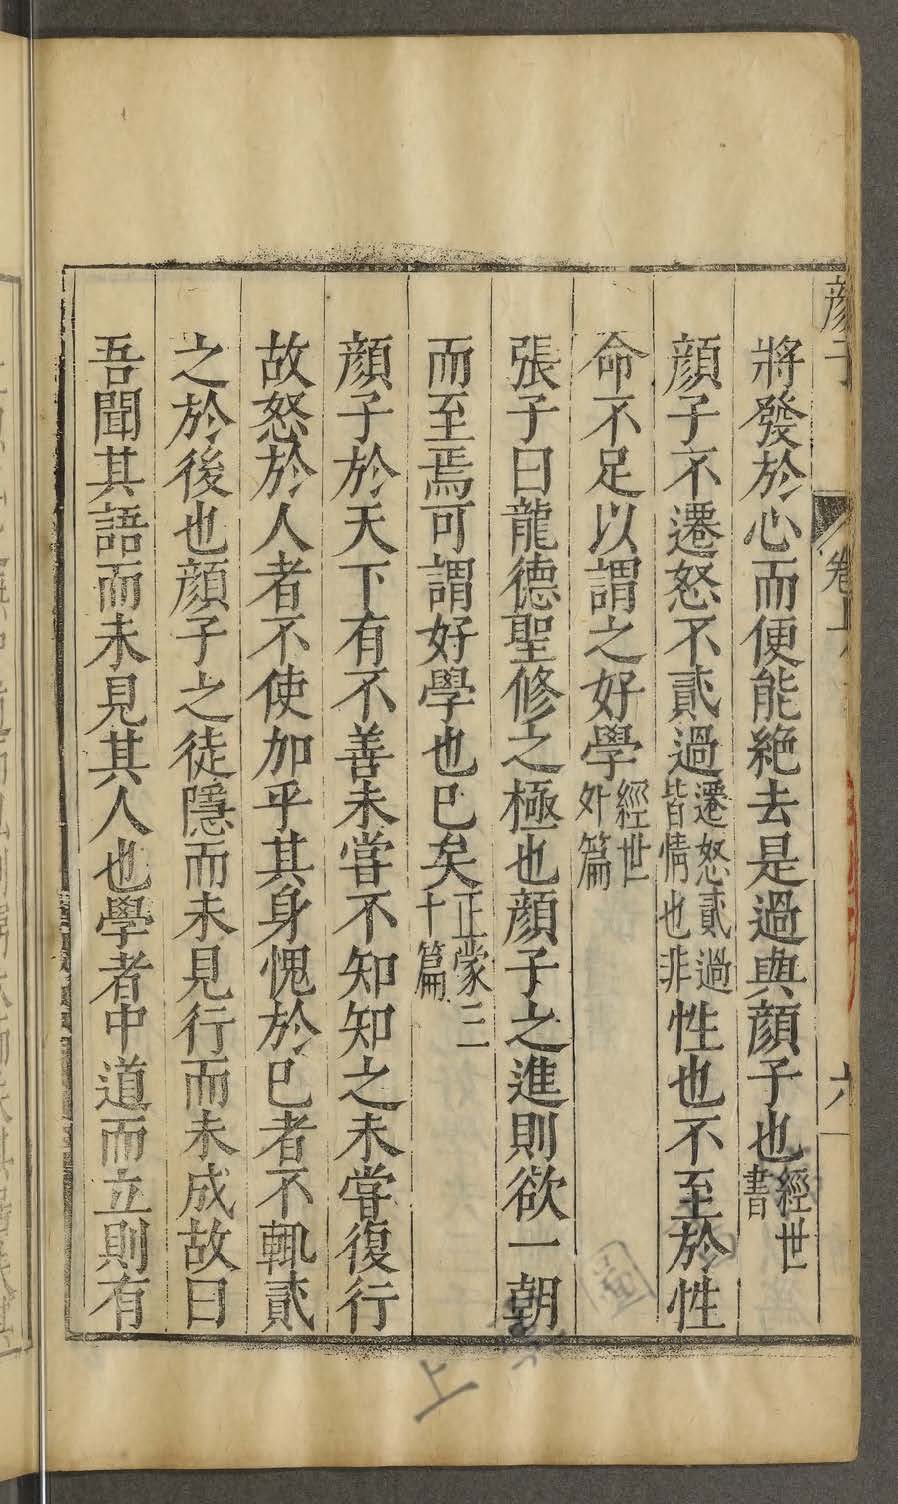 將發於心而便能絶去是過與顔子也經世書
顔子不遷怒不貳過遷怒貳過皆情也非性也不至於性
命不足以謂之好學經世外篇
張子曰龍德聖修之極也顔子之進則欲一朝
而至焉可謂好學也已矣正蒙三十篇
顔子於天下有不善未嘗不知知之未嘗復行
故怒於人者不使加乎其身愧於已者不輒貳
之於後也顔子之徒隱而未見行而未成故曰
吾聞其語而未見其人也學者中道而立則有
上